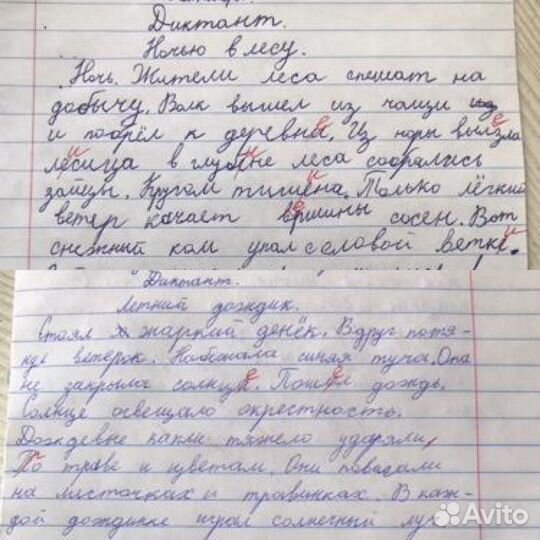 Диктант.
Ночью в лесу.
Ночь. Жители леса спешат на
добычу. Волк вышел из чащи
и побрёл к деревне. Из норы вылезла
лисица в глубине леса собрались
зайцы. Кругом тишина. Только лёгкий
ветер качает вершины сосен. Вот
снежный ком упал с еловой ветки.
Диктант.
Летний дождик.
Стоял жаркий денёк. Вдруг потя-
нул ветерок. Набежала синяя туча. Она
не закрыла солнце. Пошёл дождь.
Солнце освещало окрестность.
Дождевые капли тяжело ударяли
По траве и цветам. Они повисали
на листочках и травинках. В каж-
дой дождинке играл солнечный луч
Avito